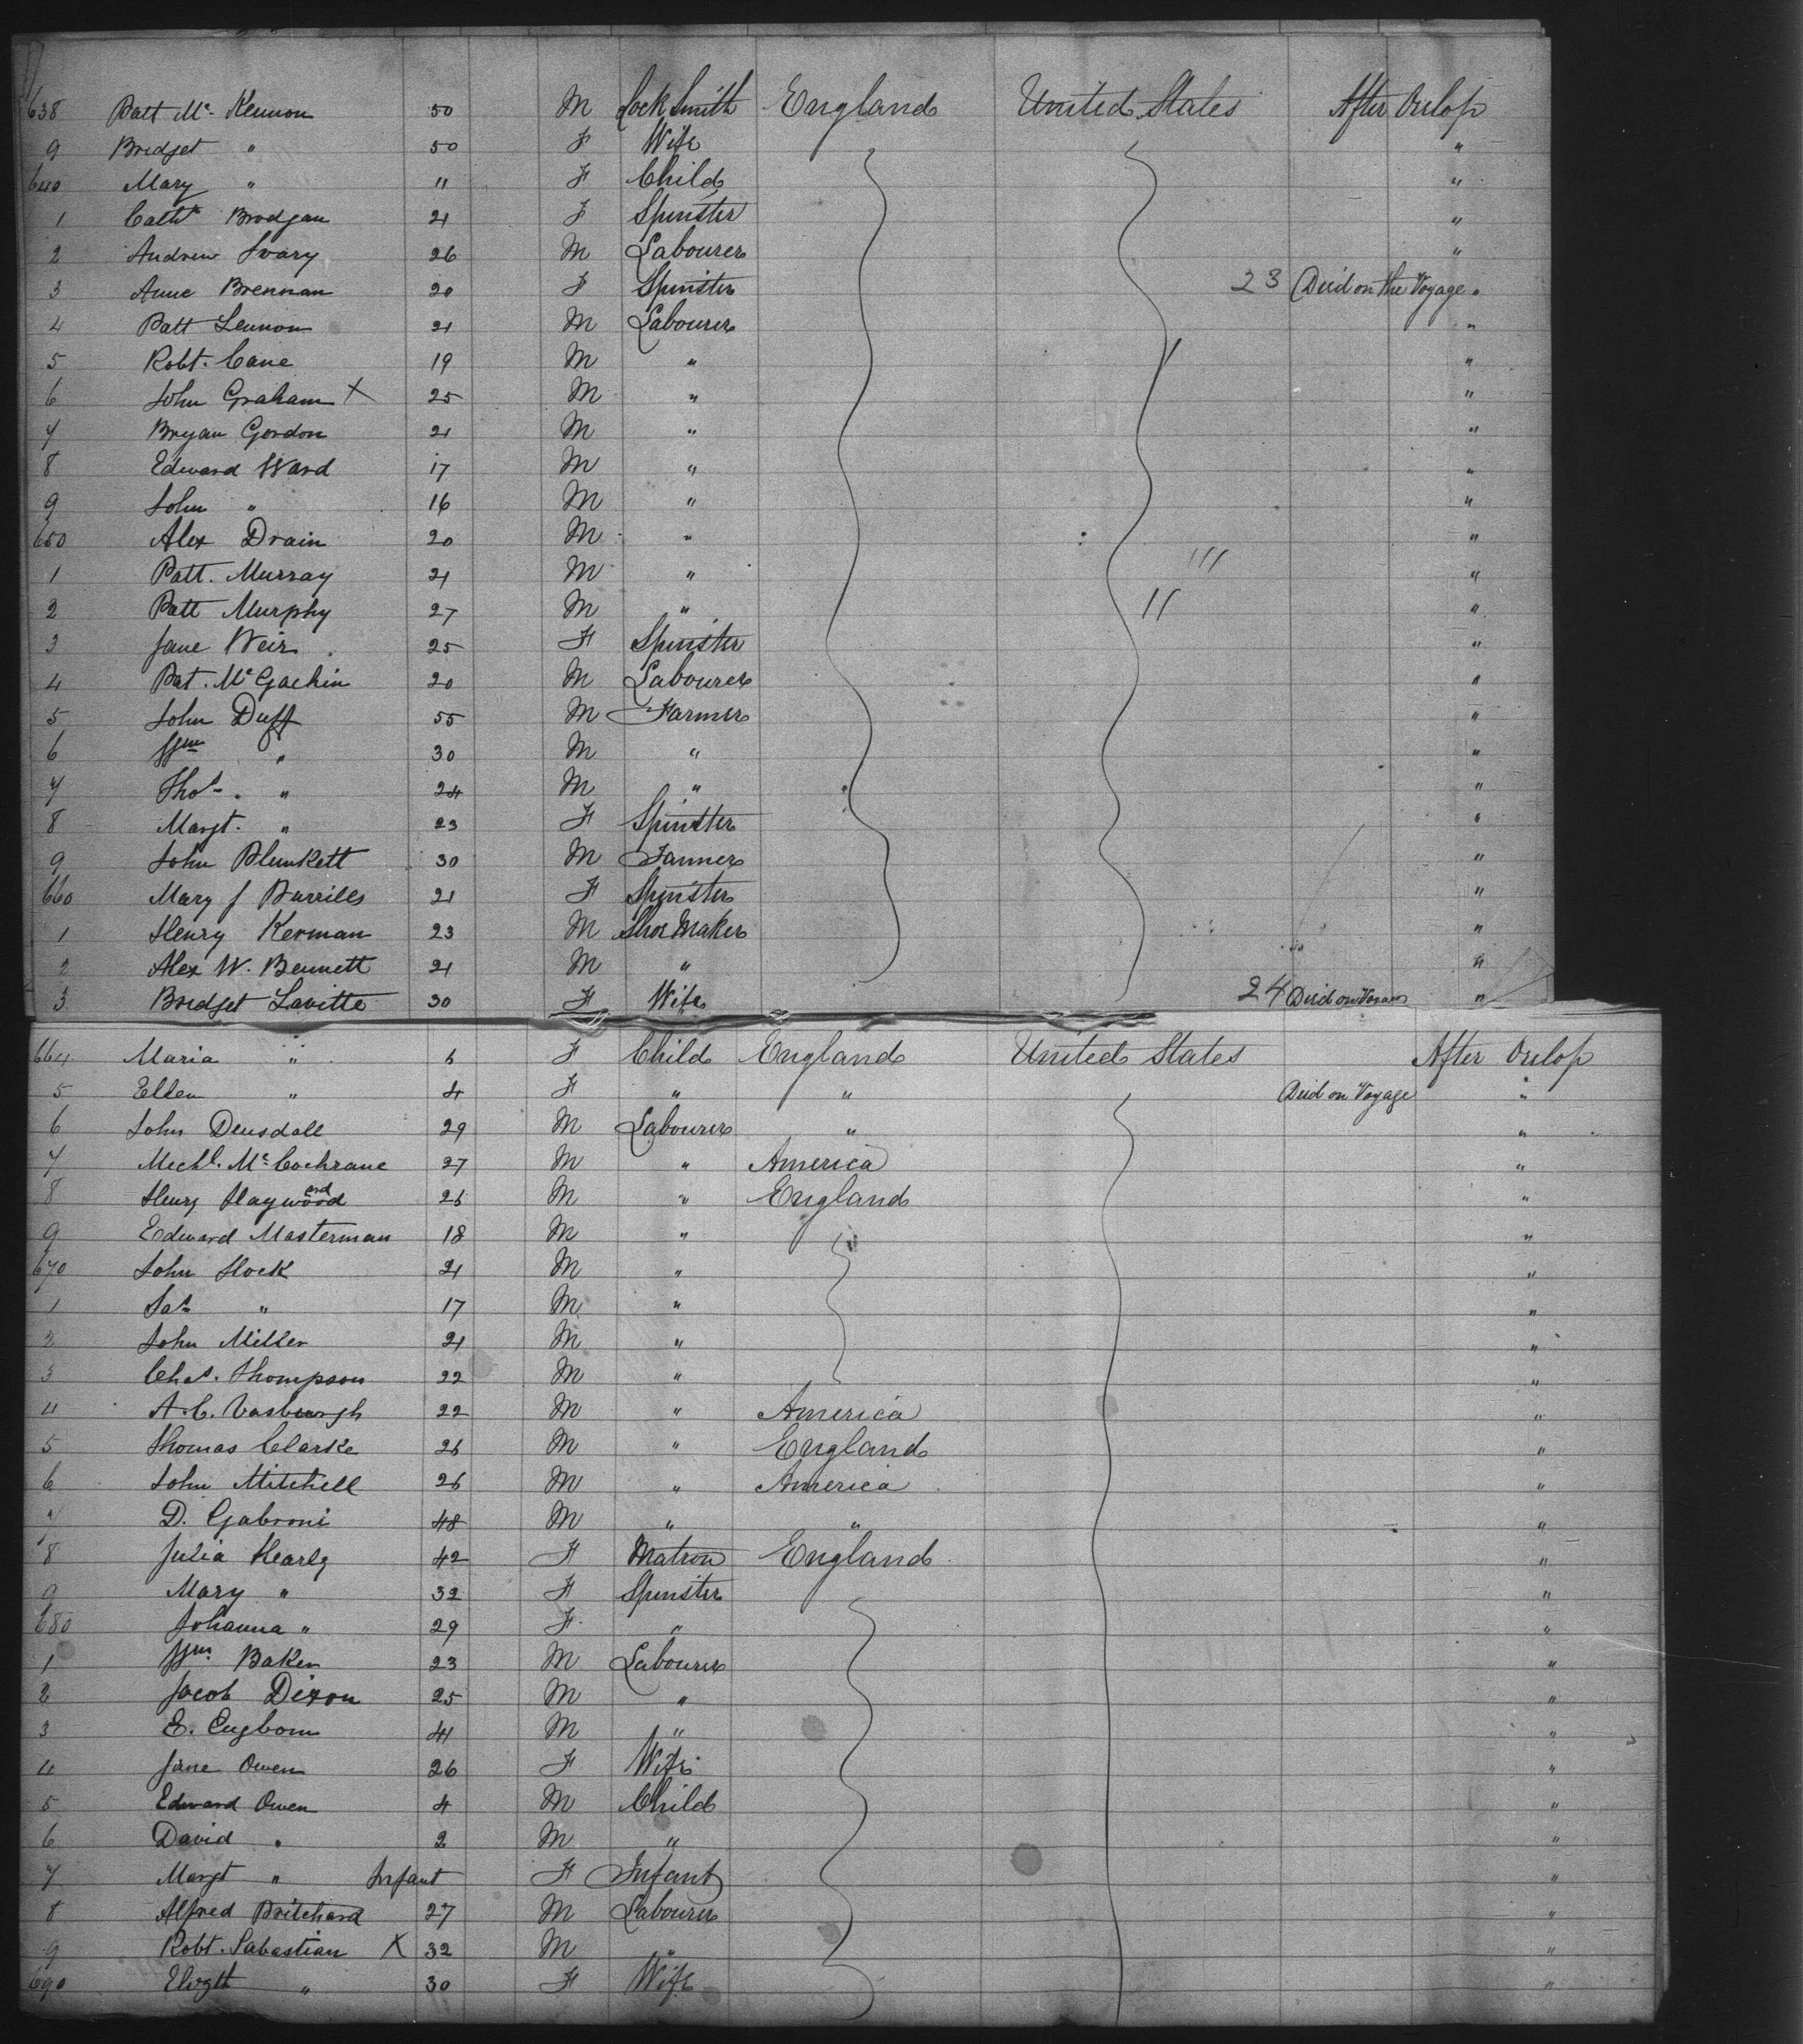 638 Patt Mc Kennon 50 M Lock Smith England United States After Orlop
9 Bridget " 50 F Wife "
640 Mary " 11 F Child "
1 Cathe Brodgan 21 F Spinster "
2 Andrew Ivary 26 M Labourer "
3 Anne Brennan 20 F Spinster 23 Died on the Voyage "
4 Patt Lennon 21 M Labourer "
5 Robt. Cane 19 M " "
6 John Graham X 25 M " "
7 Bryan Gordon 21 M " "
8 Edward Ward 17 M " "
9 John " 16 M " "
650 Alex Drain 20 M " "
1 Patt. Murray 21 M " "
2 Patt Murphy 27 M " "
3 Jane Weir 25 F Spinster "
4 Pat. McGachin 20 M Labourer "
5 John Duff 55 M Farmer "
6 Wm " 30 M " "
7 Thos. " 24 M " "
8 Margt. " 23 F Spinster "
9 John Plunkett 30 M Farmer "
660 Mary J Burriles 21 F Spinster "
1 Henry Kerman 23 M Shoe Maker "
2 Alex W. Bennett 21 M " "
3 Bridget Lavitte 30 F Wife 24 Died on Voyage "
664 Maria " 6 F Child England United States After Orlop
5 Ellen " 4 F " " Died on Voyage "
6 John Deusdall 29 M Labourer " "
7 Mechl. McCochrane 27 M " America "
8 Henry Haywood ard 26 M " England "
9 Edward Masterman 18 M " "
670 John Hock 21 M " "
1 Jas " 17 M " "
2 John Miller 21 M " "
3 Chas. Thompson 22 M " "
4 A. C. Vasburgh 22 M " America "
5 Thomas Clarke 26 M " England "
6 John Mitchell 26 M " America "
7 D. Gabroni 48 M " " "
8 Julia Hearly 42 F Matron England "
9 Mary " 32 F Spinster "
680 Johanna " 29 F " "
1 Wm. Baker 23 M Labourer "
2 Jacob Dixon 25 M " "
3 E. Engbom 41 M " "
4 Jane Owen 26 F Wife "
5 Edward Owen 4 M Child "
6 David " 2 M " "
7 Margt " Infant F Infant "
8 Alfred Pritchard 27 M Labourer "
9 Robt. Sabastian X 32 M " "
690 Elizth " 30 F Wife "